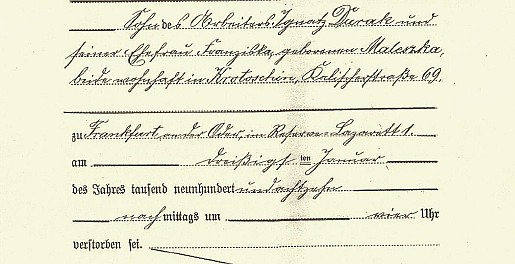 Sohn des Arbeiters Ignatz Durak und
seiner Ehefrau Franziska, geborenen Maleszka,
beide wohnhaft in Krotoschin, Kalischerstraße 69.
zu Frankfurt an der Oder, im Reserve-Lazarett 1.
am dreißigsten Januar
des Jahres tausend neunhundert undachtzehn
nachmittags um vier Uhr
verstorben sei.